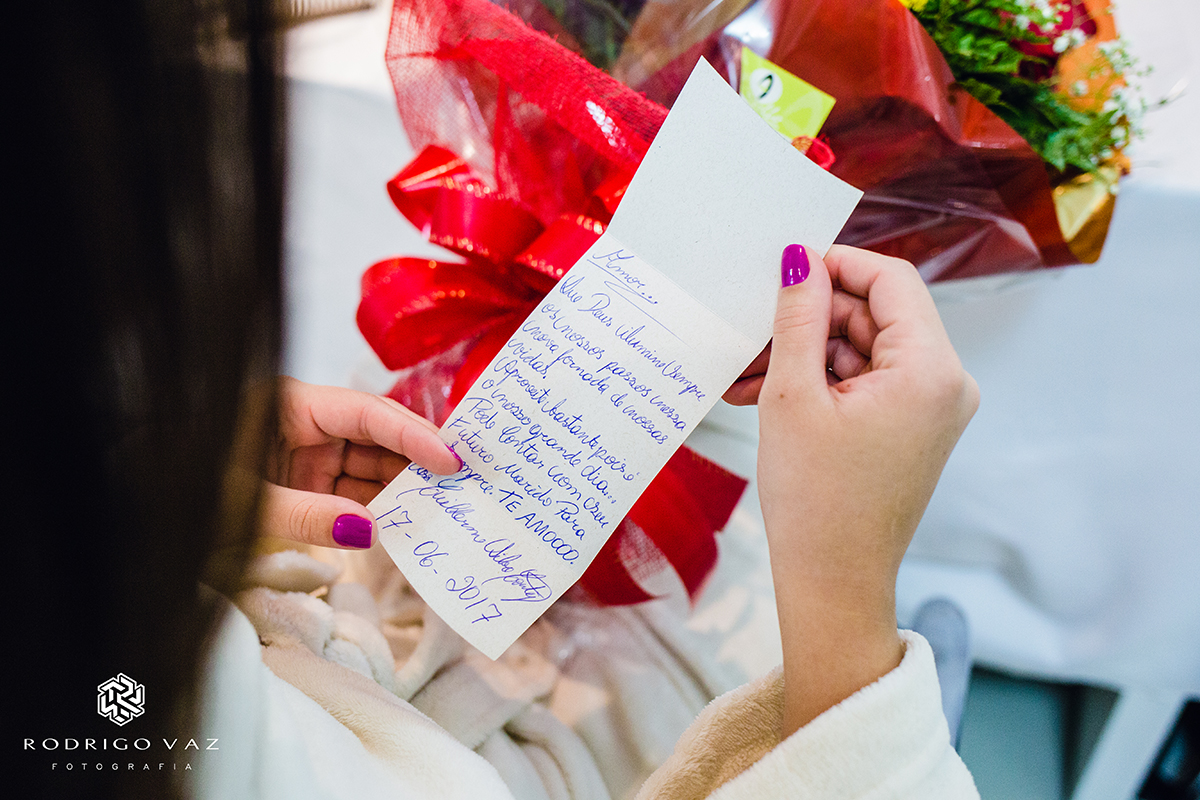 Amor...
Que Deus ilumine sempre
os nossos passos nessa
nova jornada de nossas
vidas.
Aproveite bastante pois é
o nosso grande dia...
Pode contar com seu
Futuro Marido Para
sempre. TE AMOOO.
Ass. Guilherme
17-06-2017
RODRIGO VAZ
FOTOGRAFIA